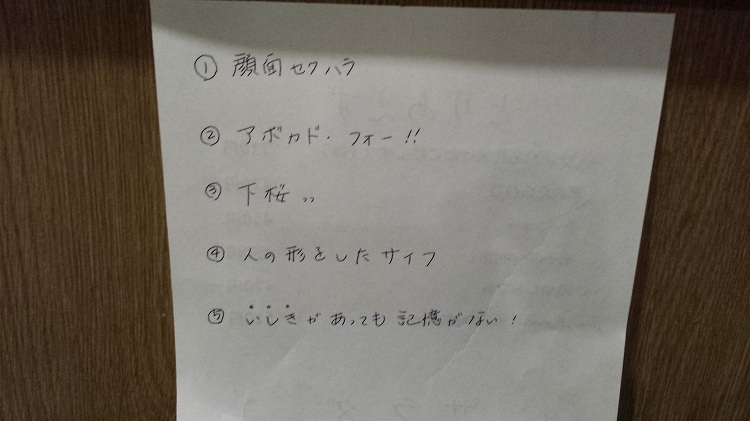 ① 顔面セクハラ
② アボカド・フォー!!
③ 下桜〃
④ 人の形をしたサイフ
⑤ いしきがあっても記憶がない!